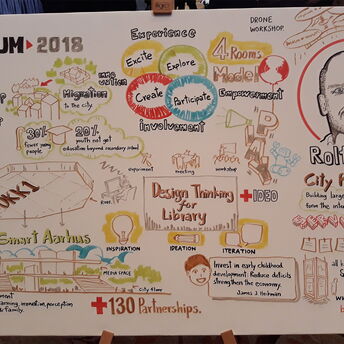 UM▸2018
Experience
DRONE
WORKSHOP.
Excite
Explore
4 Rooms
Model
Inno
vation
Migration
to the city.
Create
Participate
Empowerment
Involvement
30%
fewer young
people
20%
youth not get
education beyond secondary school
experiment
meeting
workshop
DOKK1
river.
Design Thinking
for
Library
+IDEO
Rolf
City
Building large
Smart Aarhus
INSPIRATION
IDEATION
ITERATION
MEDIA SPACE
City floor
Invest in early childhood
development: Reduce deficits
strengthen the economy.
James J Heckman
+130 Partnerships.
&family.